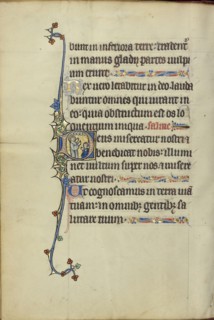 bunt in inferiora terre: tradent
in manus gladij partes uulpi
um erunt
Rex uero letabitur in deo lauda
buntur omnes qui iurant in
eo: quia obstructum est os lo
quentium iniqua psalmus
Deus misereatur nostri
benedicat nobis: illumi
net uultum suum super nos & misere
atur nostri
Ut cognoscamus in terra uiā
tuam: in omnibꝫ gentibꝫ sa
lutare tuum